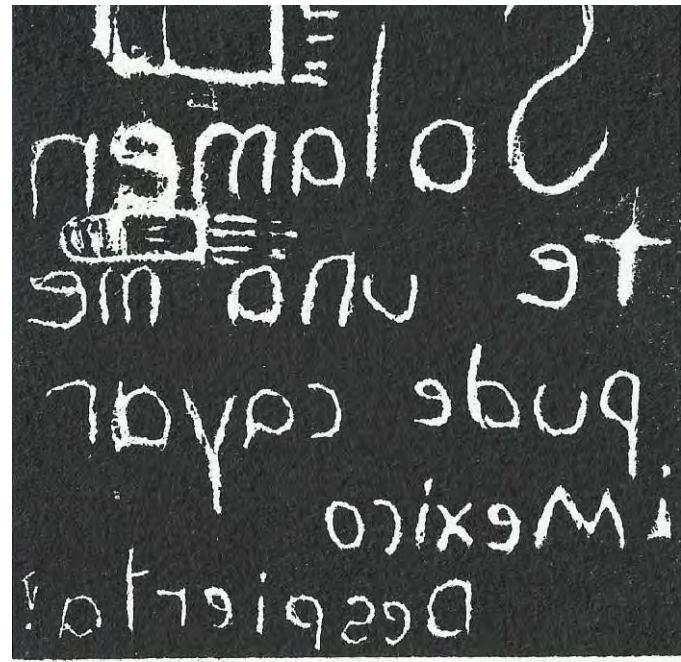 Solamen
te una me
pude cayar
¡Mexico
Despierta!